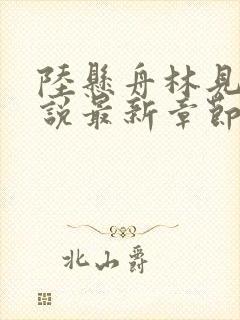 陸懸舟林見
說最新章節
北山爵